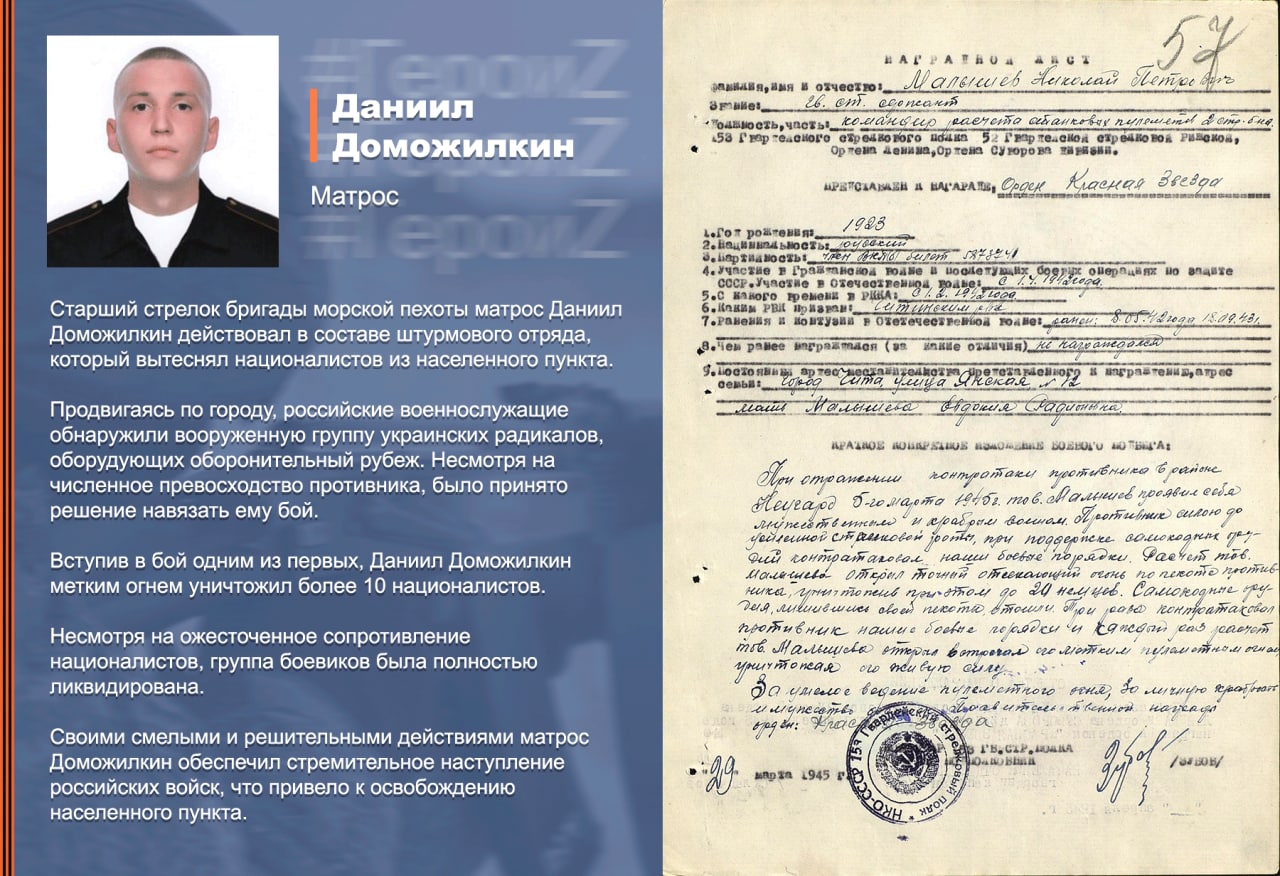 #ГероиZ
#ГероиZ
#ГероиZ
Даниил
Доможилкин
Матрос
Старший стрелок бригады морской пехоты матрос Даниил
Доможилкин действовал в составе штурмового отряда,
который вытеснял националистов из населенного пункта.
Продвигаясь по городу, российские военнослужащие
обнаружили вооруженную группу украинских радикалов,
оборудующих оборонительный рубеж. Несмотря на
численное превосходство противника, было принято
решение навязать ему бой.
Вступив в бой одним из первых, Даниил Доможилкин
метким огнем уничтожил более 10 националистов.
Несмотря на ожесточенное сопротивление
националистов, группа боевиков была полностью
ликвидирована.
Своими смелыми и решительными действиями матрос
Доможилкин обеспечил стремительное наступление
российских войск, что привело к освобождению
населенного пункта.
57
НАГРАДНОЙ ЛИСТ
Фамилия, имя и отчество: Малышев Николай Петрович
Звание: гв. ст. сержант
Должность, часть: командир расчета станковых пулеметов 2 стр. б-на
153 Гвардейского стрелкового полка 52 Гвардейской стрелковой Рижской,
Ордена Ленина, Ордена Суворова дивизии.
ПРЕДСТАВЛЕН К НАГРАДЕ, Орден Красная Звезда
1. Год рождения: 1923
2. Национальность: русский
3. Партийность: член ВКПб билет
4. Участие в Гражданской войне и последующих боевых операциях по защите
СССР. Участие в Отечественной войне: с 1.4.1942 года.
5. С какого времени в РККА: с 1.2.1942 года.
6. Каким РВК призван: Читинским рвк
7. Ранения и контузии в Отечественной войне: ранен: 8.05.42 года 18.09.43 г.
8. Чем ранее награждался (за какие отличия) не награждался
9. Постоянный адрес представленного к награждению, адрес
семьи: город Чита, улица Янская, № 12
мать Малышева Евдокия Родионовна.
КРАТКОЕ КОНКРЕТНОЕ ИЗЛОЖЕНИЕ БОЕВОГО ПОДВИГА:
При отражении контратаки противника в районе
5-го марта 1945 г. тов. Малышев проявил себя
мужественным и храбрым воином. Противник силою до
усиленной стрелковой роты, при поддержке самоходных ору-
дий контратаковал наши боевые порядки. Расчет тов.
Малышева открыл точный отсекающий огонь по пехоте против-
ника, уничтожив при этом до 20 немцев. Самоходные ору-
дия, лишившись своей пехоты, отошли. Три раза контратаковал
противник наши боевые порядки и каждый раз расчет
тов. Малышева встречал его метким пулеметным огнем
уничтожая его живую силу.
За умелое ведение пулеметного огня, за личную храбрость
и мужество Правительственной награды
орден: Красная Звезда
ГВ. СТР. ПОЛКА
ПОЛКОВНИК /ЗУБОВ/
"29" марта 1945 г.
НКО-СССР 153 Гвардейский стрелковый полк